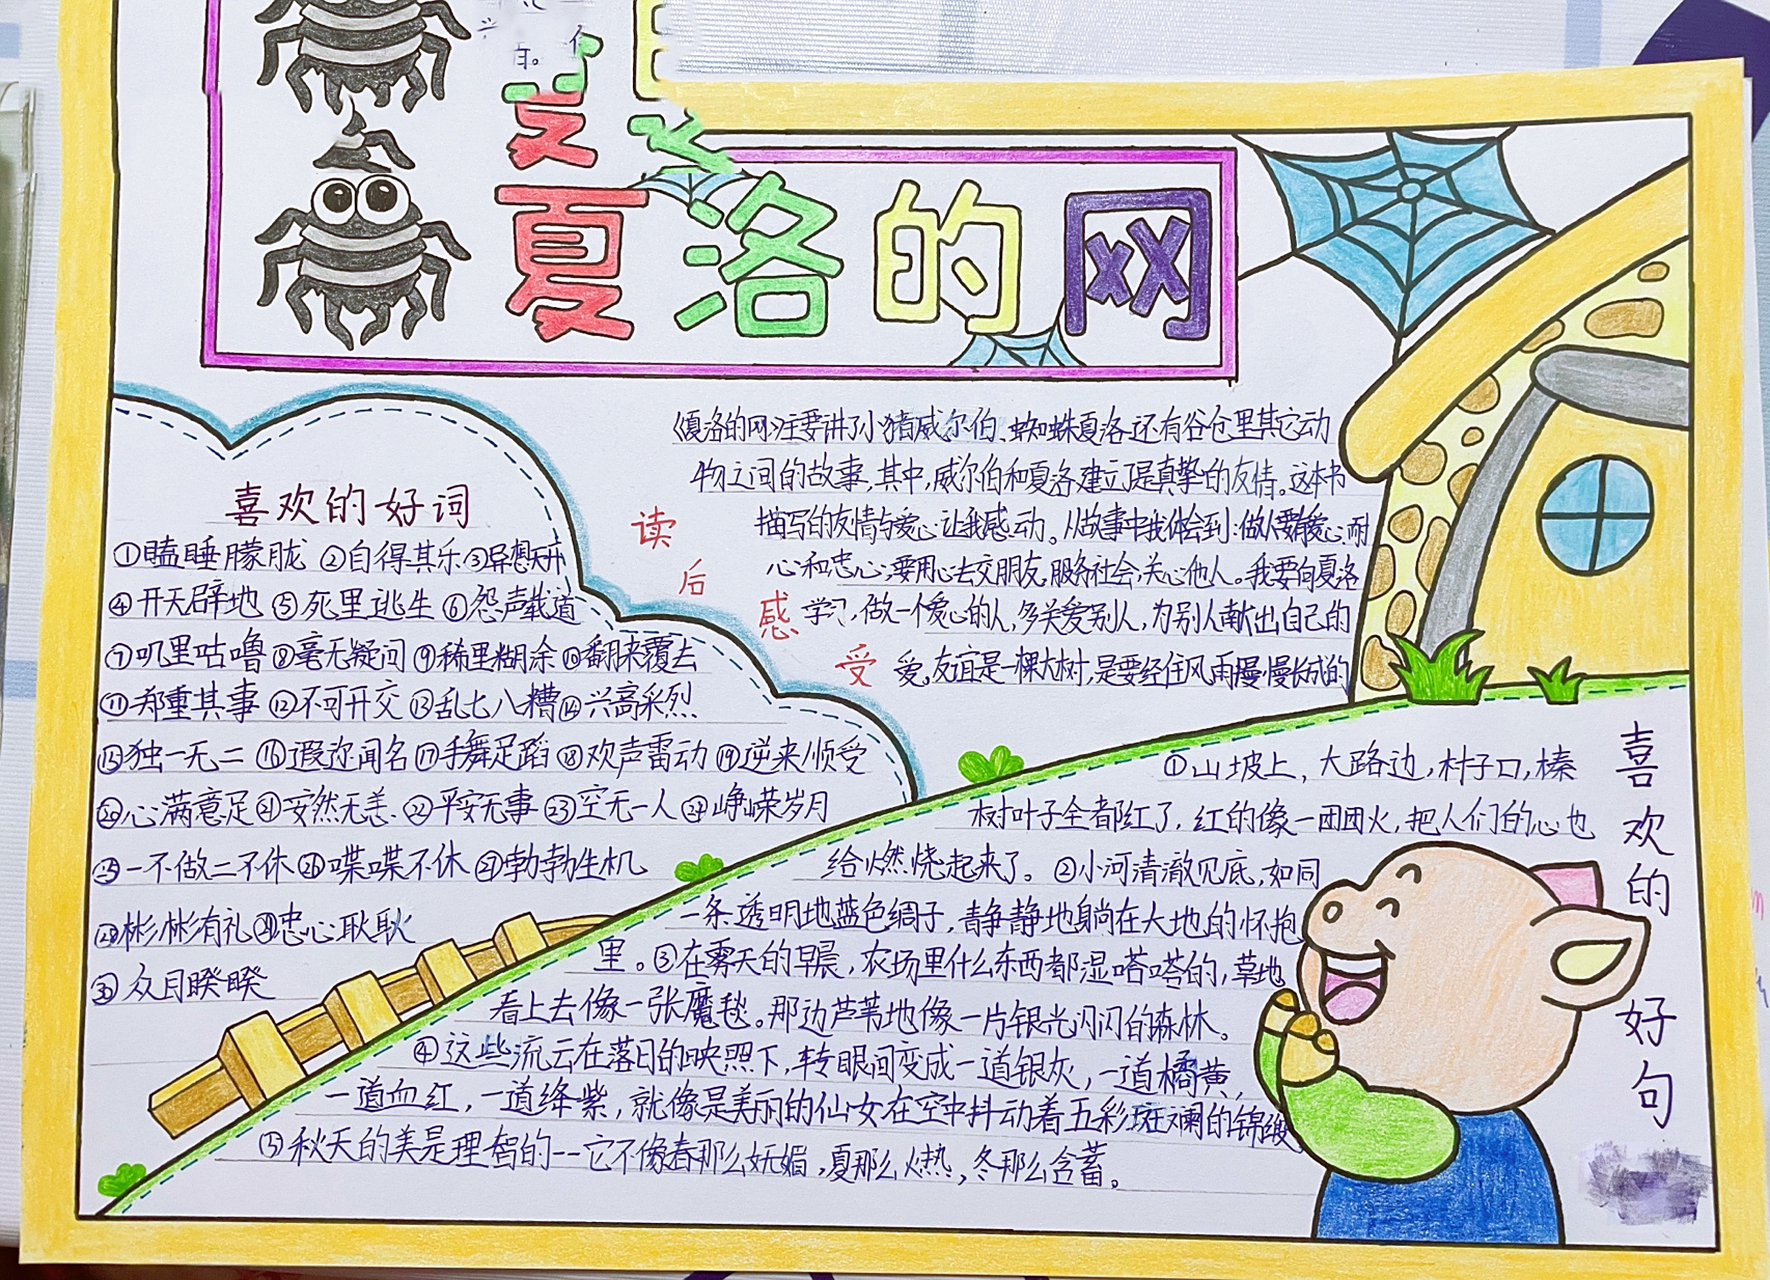 夏洛的网
喜欢的好词
①瞌睡朦胧 ②自得其乐③异想天开
④开天辟地 ⑤死里逃生 ⑥怨声载道
⑦叽里咕噜⑧毫无疑问⑨稀里糊涂⑩翻来覆去
⑪郑重其事 ⑫不可开交 ⑬乱七八糟⑭兴高采烈
⑮独一无二 ⑯遐迩闻名⑰手舞足蹈 ⑱欢声雷动 ⑲逆来顺受
⑳心满意足㉑安然无恙 ㉒平安无事 ㉓空无一人 ㉔峥嵘岁月
㉕一不做二不休㉖喋喋不休 ㉗勃勃生机
㉘彬彬有礼㉙忠心耿耿
㉚众目睽睽
读后感受
《夏洛的网》主要讲了小猪威尔伯、蜘蛛夏洛还有谷仓里其它动
物之间的故事,其中,威尔伯和夏洛建立了是真挚的友情。这本书
描写的友情与爱心让我感动。从故事中我体会到:做人要有爱心,耐
心和忠心,要用心去交朋友,服务社会,关心他人。我要向夏洛
学习,做一个爱心的人,多关爱别人,为别人献出自己的
爱,友谊是一棵大树,是要经住风雨慢慢长成的
喜欢的好句
①山坡上,大路边,村子口,榛
树叶子全都红了,红的像一团团火,把人们的心也
给燃烧起来了。②小河清澈见底,如同
一条透明地蓝色绸子,静静地躺在大地的怀抱
里。③在雾天的早晨,农场里什么东西都湿嗒嗒的,草地
看上去像一张魔毯。那边芦苇地像一片银光闪闪的森林。
④这些流云在落日的映照下,转眼间变成一道银灰,一道橘黄,
一道血红,一道绛紫,就像是美丽的仙女在空中抖动着五彩斑斓的锦缎
⑤秋天的美是理智的--它不像春那么妩媚,夏那么火热,冬那么含蓄。